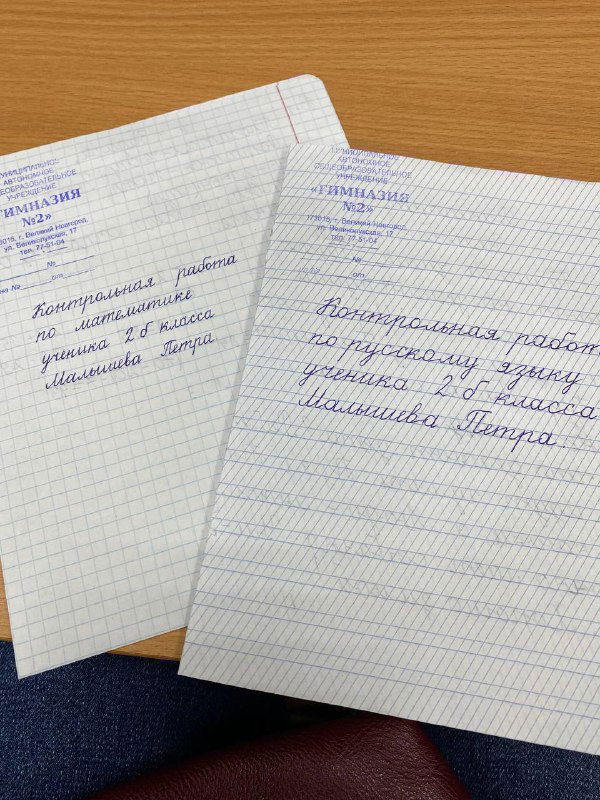 МУНИЦИПАЛЬНОЕ
АВТОНОМНОЕ
ОБЩЕОБРАЗОВАТЕЛЬНОЕ
УЧРЕЖДЕНИЕ
«ГИМНАЗИЯ
№2»
173016, г. Великий Новгород,
ул. Великолукская, 17
тел. 77-51-04
№
на № от
Контрольная работа
по математике
ученика 2 б класса
Малышева Петра
МУНИЦИПАЛЬНОЕ
АВТОНОМНОЕ
ОБЩЕОБРАЗОВАТЕЛЬНОЕ
УЧРЕЖДЕНИЕ
«ГИМНАЗИЯ
№2»
173016, г. Великий Новгород,
ул. Великолукская, 17
тел. 77-51-04
№
от
Контрольная работ
по русскому языку
ученика 2 б класса
Малышева Петра.